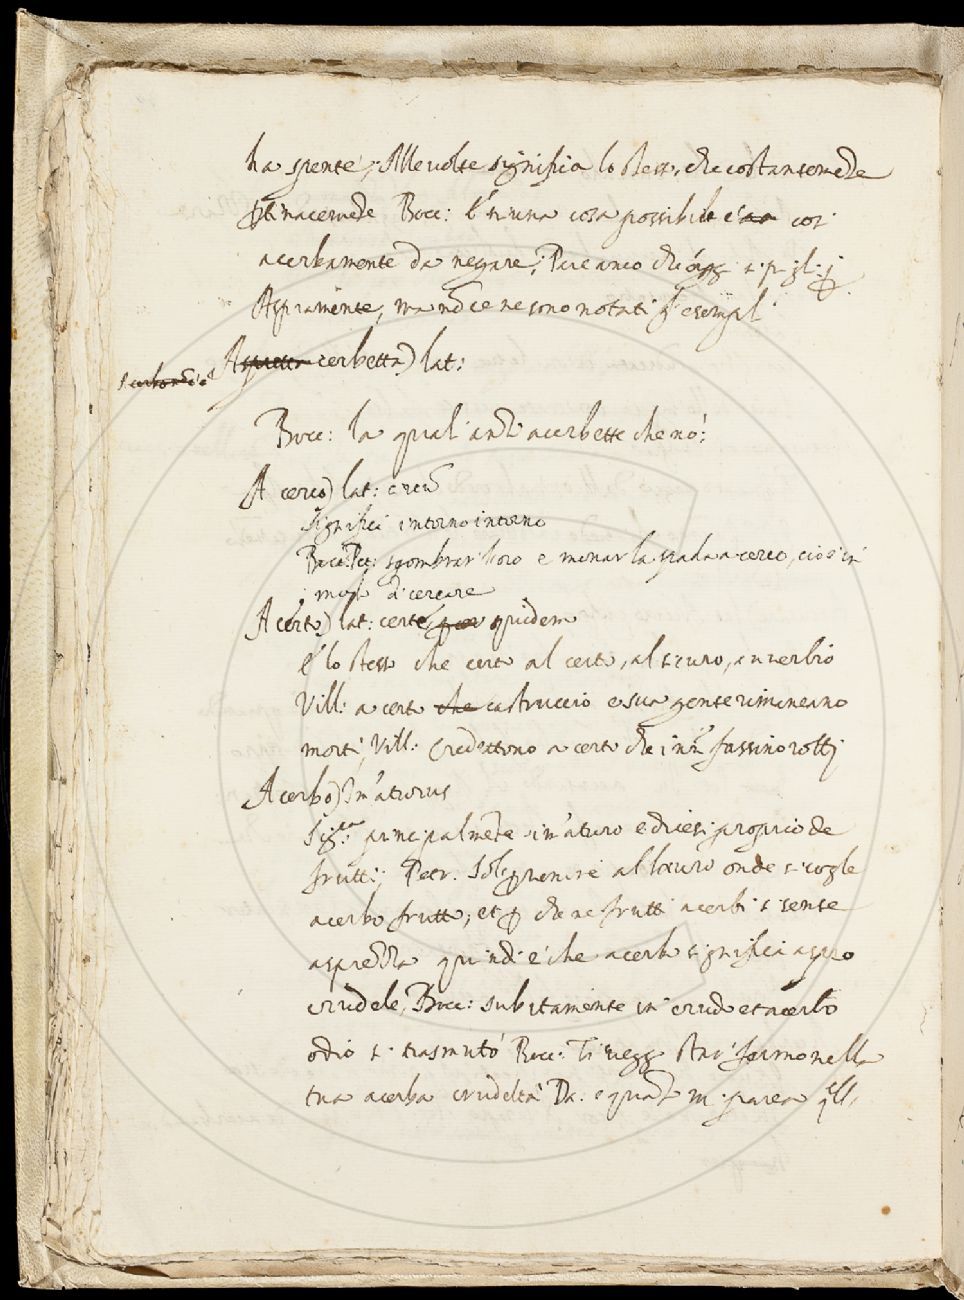 ha spente; Alle uolte significa lo stesso, che costantemte
Boce: E niuna cosa possibile è cosi
acerbamente da negare; Pare anco che
Aspramente, ma nō ce ne sono notati esempi
Acerbetta) lat:
Bocc: la qual anzi acerbette che nò:
A cerco) lat: circū
Significa intorno intorno
Pet: sgombrar l'oro e menar la spada a cerco, cioè in
modo di cercare
A certo) lat: certe quidem
E' lo stesso che certo al certo, al sicuro, auuerbio
Vill: a certo che castruccio e sua gente rimineano
morti, Vill: Credettono a certo che fussino rotti
Acerbo) Im̄aturus
Sig.ca principalmēte im̄aturo e dicesi proprio de
frutti; Petr. Sol p uenire al lauro onde si cogle
acerbo frutto; et p che ne frutti acerbi si sente
asprezza quindi è che acerbo significa aspro
crudele, Bocc: subitamente in crudo et acerbo
odio si trasmutò Bocc: Ti uegg star fermo nella
tua acerba crudeltà Da: e quāto mi parea